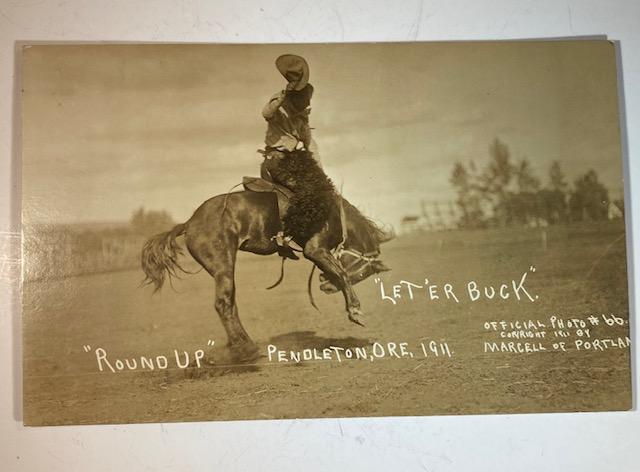 "LET 'ER BUCK".
OFFICIAL PHOTO # 66.
COPYRIGHT 1911 BY
MARCELL OF PORTLAN
"ROUND UP" PENDLETON, ORE, 1911.